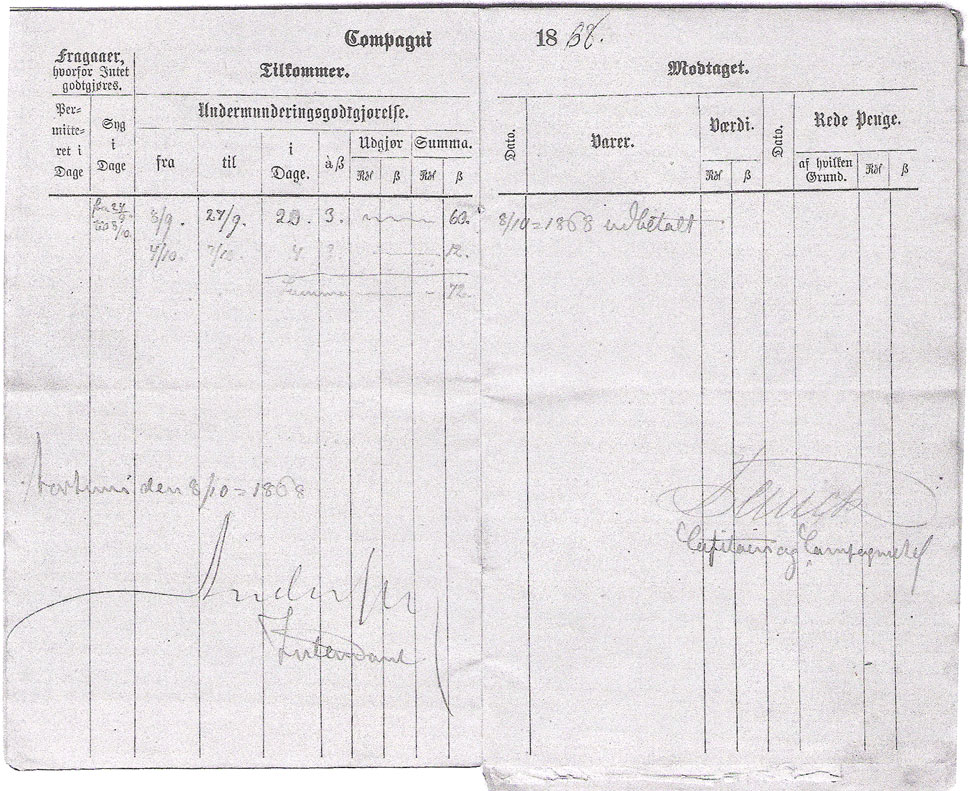 Compagni
1868.
Fragaaer, hvorfor Intet godtgjøres.
Tilkommer.
Modtaget.
Permitteret i Dage
Syg i Dage
Undermunderingsgodtgjørelse.
fra
til
i Dage.
à ß
Udgjør
Summa.
Rdl ß Rdl ß
Dato.
Varer.
Værdi.
Rdl ß
Dato.
Rede Penge.
af hvilken Grund.
Rdl ß
fra 27/9. til 3/10. 3/9. 27/9. 20. 3. 60. 8/10=1868 udbetalt
4/10. 7/10. 4 3. 12.
Summa 72.
den 8/10=1868
Intendant
Capitain og Compagnichef